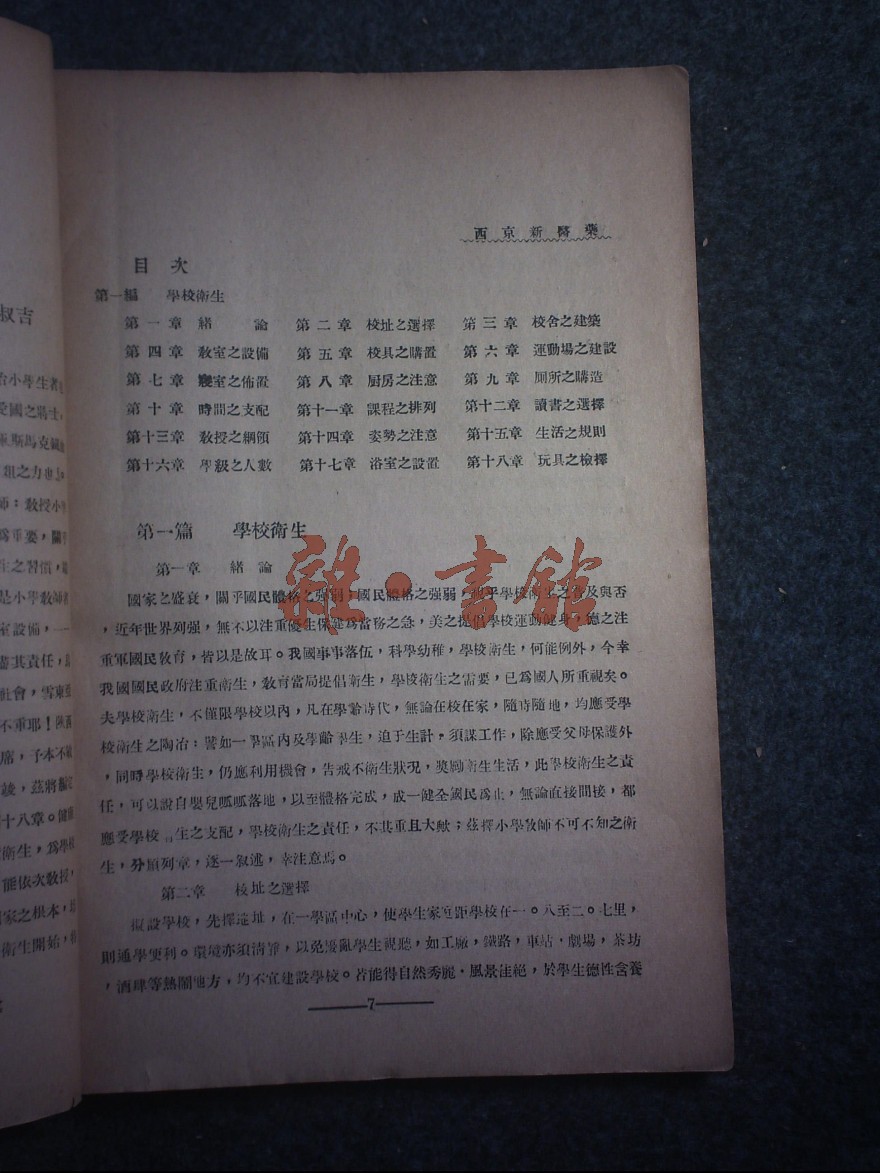 西京新醫藥
目次
第一編 學校衛生
第一章 緒論 第二章 校址之選擇 第三章 校舍之建築
第四章 教室之設備 第五章 校具之購置 第六章 運動場之建設
第七章 寢室之佈置 第八章 厨房之注意 第九章 厠所之購造
第十章 時間之支配 第十一章 課程之排列 第十二章 讀書之選擇
第十三章 敎授之綱領 第十四章 姿勢之注意 第十五章 生活之規則
第十六章 學級之人數 第十七章 浴室之設置 第十八章 玩具之檢擇
第一篇 學校衛生
第一章 緒論
國家之盛衰，關乎國民體格之强弱；國民體格之强弱，視乎學校衛生之普及與否
，近年世界列强，無不以注重優生保健爲當務之急，美之提倡學校運動健身，德之注
重軍國民敎育，皆以是故耳。我國事事落伍，科學幼稚，學校衛生，何能例外，今幸
我國國民政府注重衛生，敎育當局提倡衛生，學校衛生之需要，已爲國人所重視矣。
夫學校衛生，不僅限學校以內，凡在學齡時代，無論在校在家，隨時隨地，均應受學
校衛生之陶冶：譬如一學區內及學齡學生，迫于生計，須謀工作，除應受父母保護外
，同時學校衛生，仍應利用機會，告戒不衛生狀況，奬勵衛生生活，此學校衛生之責
任，可以說自嬰兒呱呱落地，以至體格完成，成一健全國民爲止，無論直接間接，都
應受學校 生之支配，學校衛生之責任，不其重且大歟；茲擇小學敎師不可不知之衛
生，分類列章，逐一叙述，幸注意焉。
第二章 校址之選擇
擬設學校，先擇適址，在一學區中心，使學生家 距學校在一。八至二。七里，
則通學便利。環境亦須淸靜，以免擾亂學生視聽，如工廠，鐵路，車站，劇場，茶坊
，酒肆等熱鬧地方，均不宜建設學校。若能得自然秀麗，風景佳絶，於學生德性含養
7
雜·書館
叔吉
治小學生者
愛國之
斯馬克
組之力也
師：敎授小
爲重要，關
生之習慣，
是小學敎師
室設備，
盡其責任，
社會，雪東
不重耶！陝西
席，予本不
綾，茲將
十八章。
衛生，爲學校
能依次敎授，
家之根本，
衛生開始，